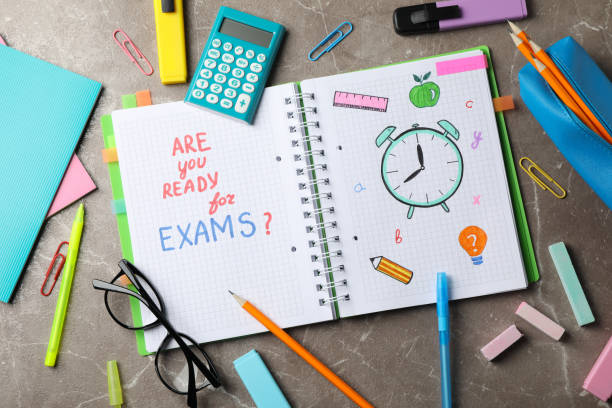 ARE
you
READY
for
EXAMS?
c
y
a
x
b
?